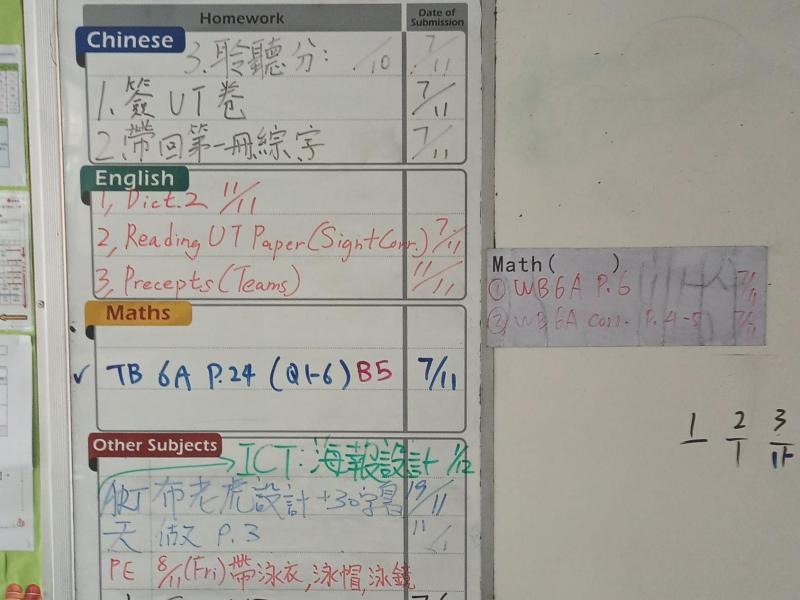 Homework Date of Submission
Chinese
3.聆聽分: /10 7/11
1.簽 UT卷 7/11
2.帶回第一冊綜字 7/11
English
1, Dict.2 11/11
2, Reading UT Paper(Sign+Corr.) 7/11
3, Precepts(Teams) 11/11
Maths
✓ TB 6A P.24 (Q1-6) B5 7/11
Math( )
① WB6A P.6 7/11
② WB 6A corr. P.4-5 7/11
1 2/1 3/11
Other Subjects
ICT: 海報設計 1/12
ART 布老虎設計+30字 19/11
天 做 P.3 11/
PE 8/11(Fri)帶泳衣,泳帽,泳鏡